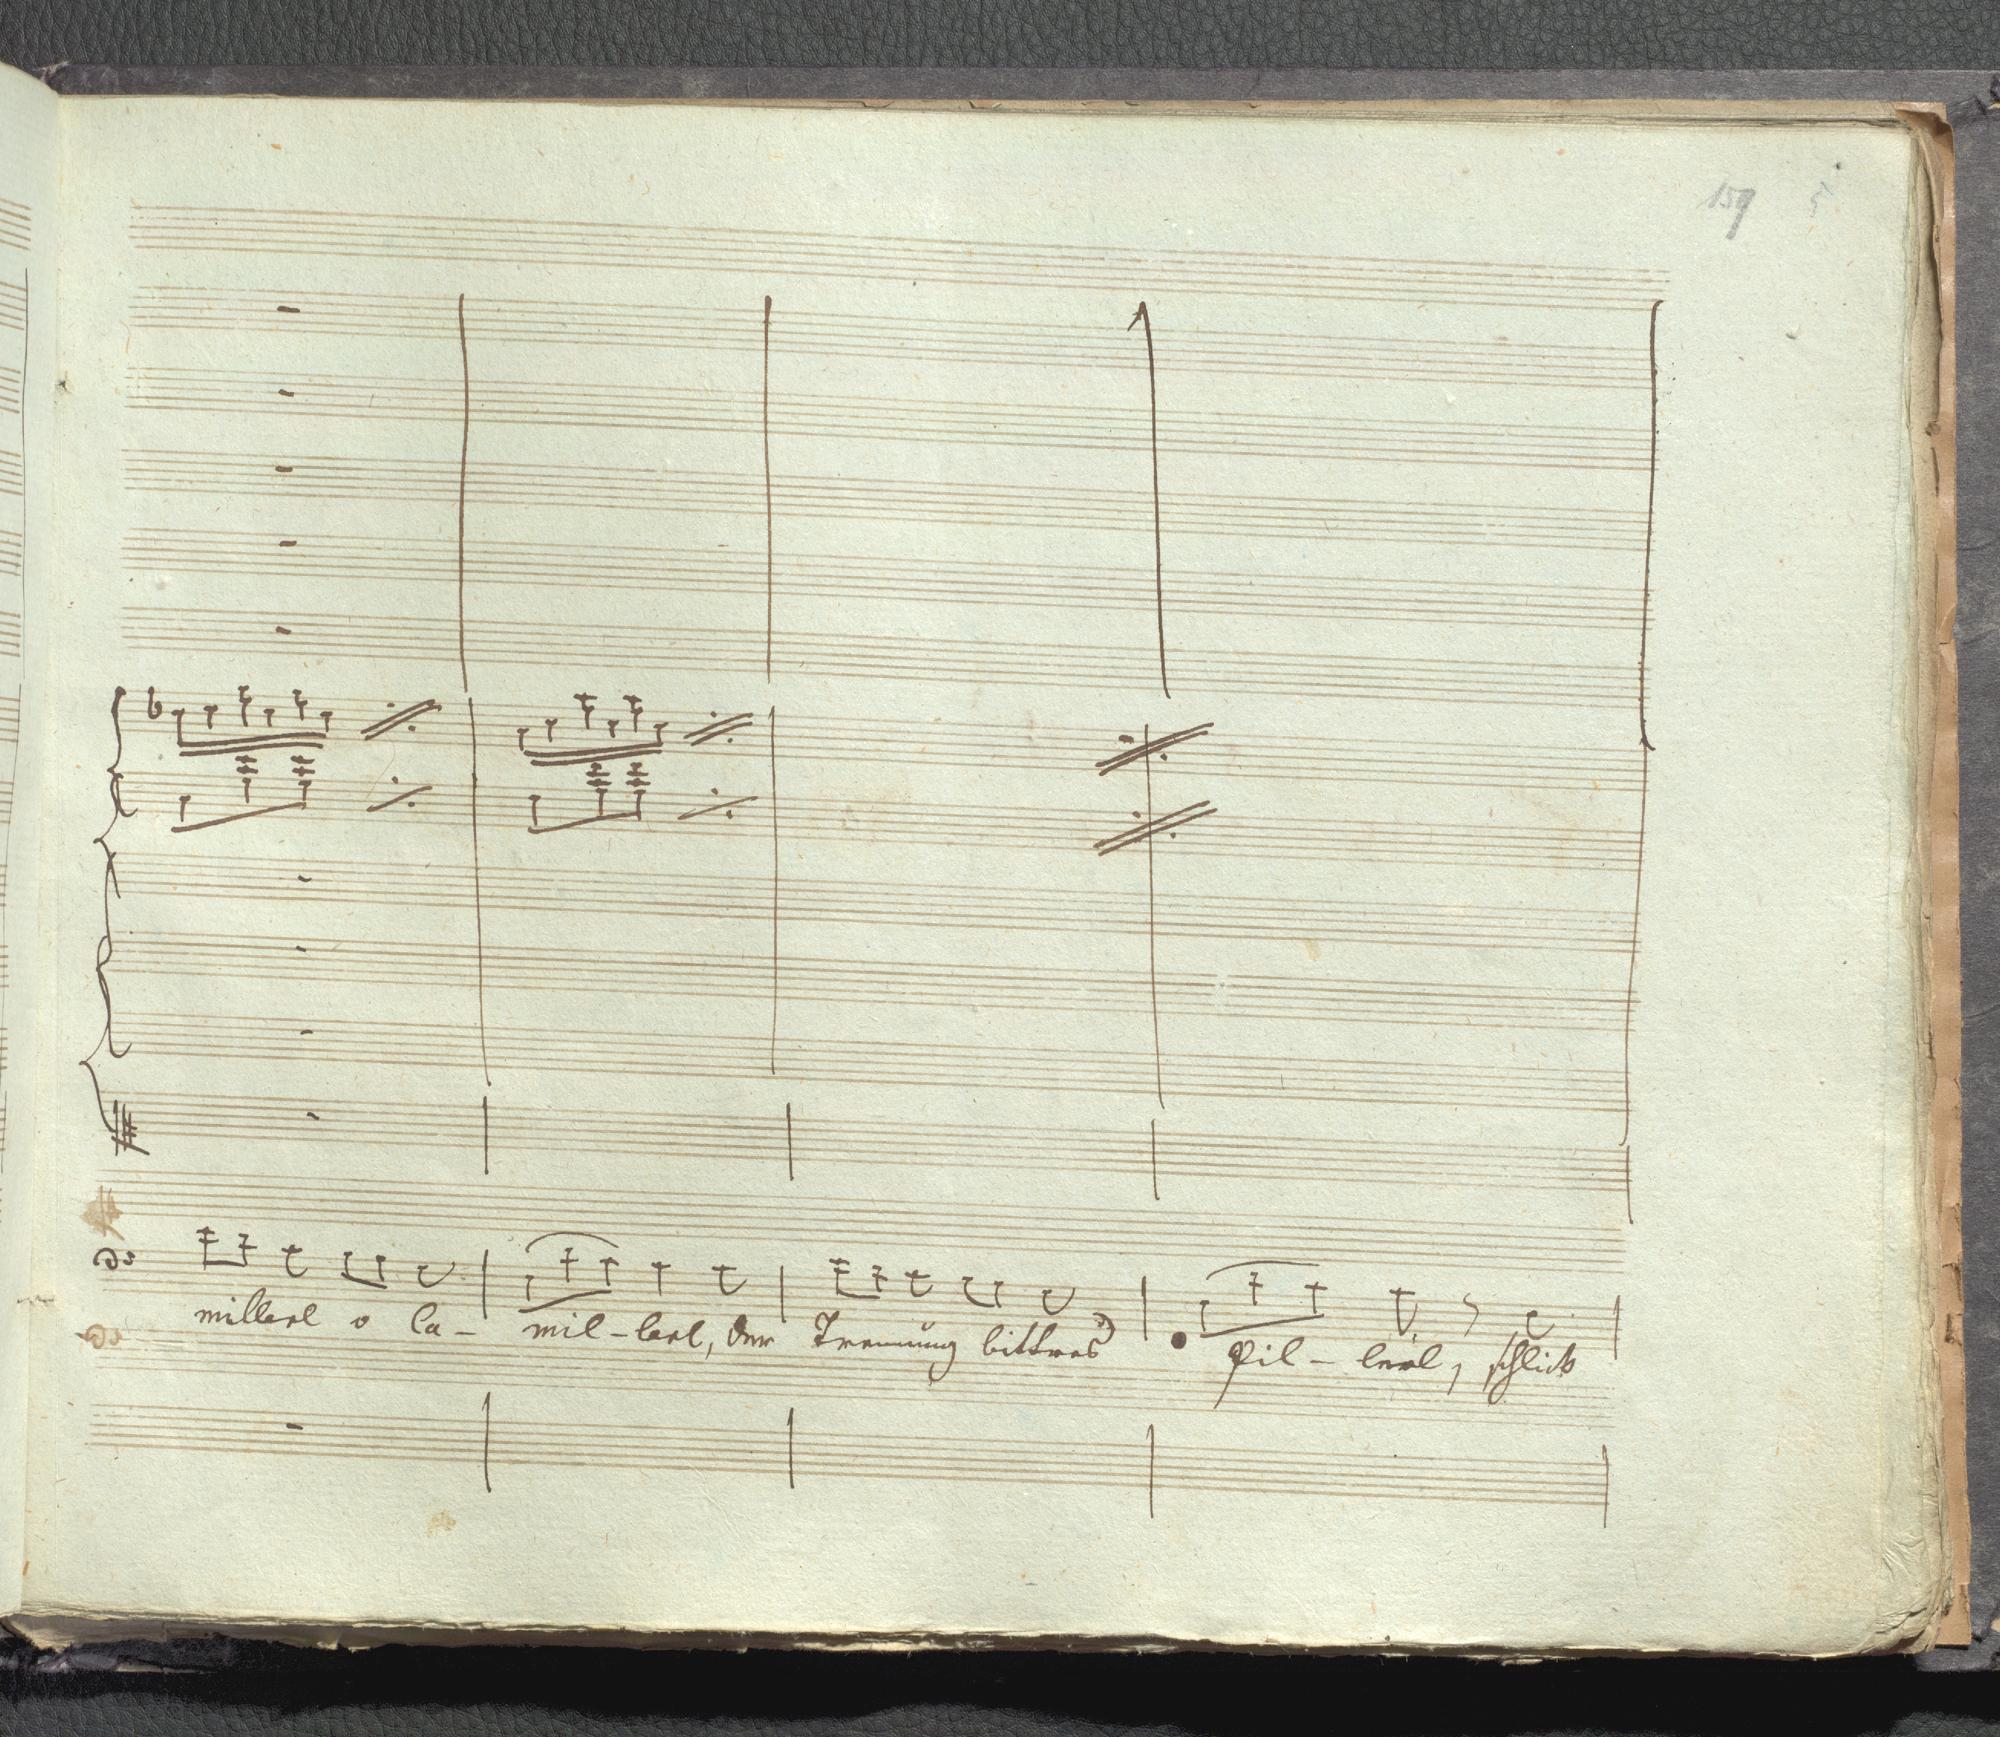 159 5
millerl o Ca- mil-lerl, der Trennung bittres Pil-lerl, schlick